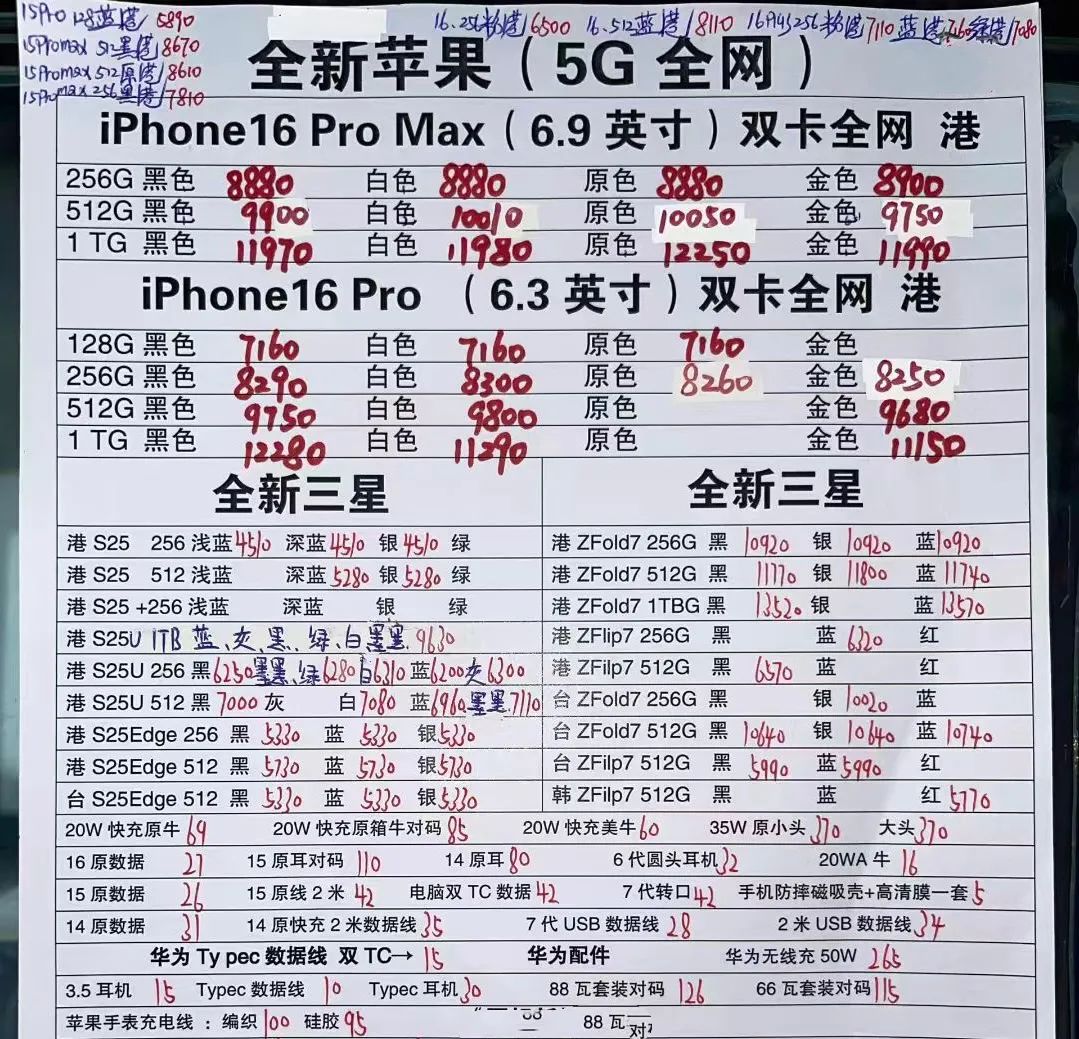 15Pro 128蓝港/5890
15Promax 512黑港/8670
15Promax 512原港/8610
15Promax 256黑港/7810
16.256粉港/6500 16.512蓝港/8110 16Plus256粉港/7110 蓝港7160绿港/7080
全新苹果（5G 全网）
iPhone16 Pro Max（6.9 英寸）双卡全网 港
256G 黑色 8880 白色 8880 原色 8880 金色 8900
512G 黑色 9900 白色 10010 原色 10050 金色 9750
1 TG 黑色 11970 白色 11980 原色 12250 金色 11990
iPhone16 Pro （6.3 英寸）双卡全网 港
128G 黑色 7160 白色 7160 原色 7160 金色
256G 黑色 8290 白色 8300 原色 8260 金色 8250
512G 黑色 9750 白色 9800 原色 金色 9680
1 TG 黑色 12280 白色 11290 原色 金色 11150
全新三星
港 S25 256 浅蓝4510 深蓝4510 银4510 绿
港 S25 512 浅蓝 深蓝5280 银5280 绿
港 S25 +256 浅蓝 深蓝 银 绿
港 S25U 1TB 蓝、灰、黑、绿、白墨黑 9630
港 S25U 256 黑6250墨黑、绿6280白6310蓝6200灰6300
港 S25U 512 黑7000灰 白7080 蓝6960墨黑7110
港 S25Edge 256 黑 5330 蓝 5330 银5330
港 S25Edge 512 黑 5730 蓝 5730 银5730
台 S25Edge 512 黑 5330 蓝 5330 银5330
全新三星
港 ZFold7 256G 黑 10920 银 10920 蓝10920
港 ZFold7 512G 黑 11770 银 11800 蓝 11740
港 ZFold7 1TBG 黑 13520 银 蓝 13570
港 ZFlip7 256G 黑 蓝 6320 红
港 ZFilp7 512G 黑 6570 蓝 红
台 ZFold7 256G 黑 银 10020 蓝
台 ZFold7 512G 黑 10640 银 10640 蓝 10740
台 ZFilp7 512G 黑 5990 蓝5990 红
韩 ZFilp7 512G 黑 蓝 红 5770
20W 快充原牛 69 20W 快充原箱牛对码 85 20W 快充美牛 60 35W 原小头 370 大头 370
16 原数据 27 15 原耳对码 110 14 原耳 80 6 代圆头耳机 32 20WA 牛 16
15 原数据 26 15 原线 2 米 42 电脑双 TC 数据 42 7 代转口 42 手机防摔磁吸壳+高清膜一套 5
14 原数据 31 14 原快充 2 米数据线 35 7 代 USB 数据线 28 2 米 USB 数据线 34
华为 Ty pec 数据线 双 TC→ 15 华为配件 华为无线充 50W 265
3.5 耳机 15 Typec 数据线 10 Typec 耳机 30 88 瓦套装对码 126 66 瓦套装对码 115
苹果手表充电线：编织 100 硅胶 95 88 瓦 对